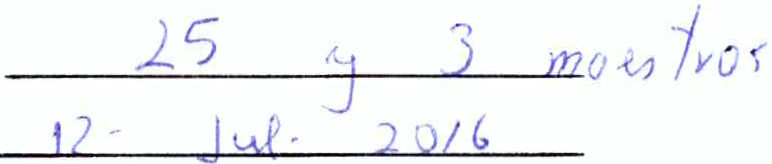 25 y 3 maestros
12- Jul- 2016